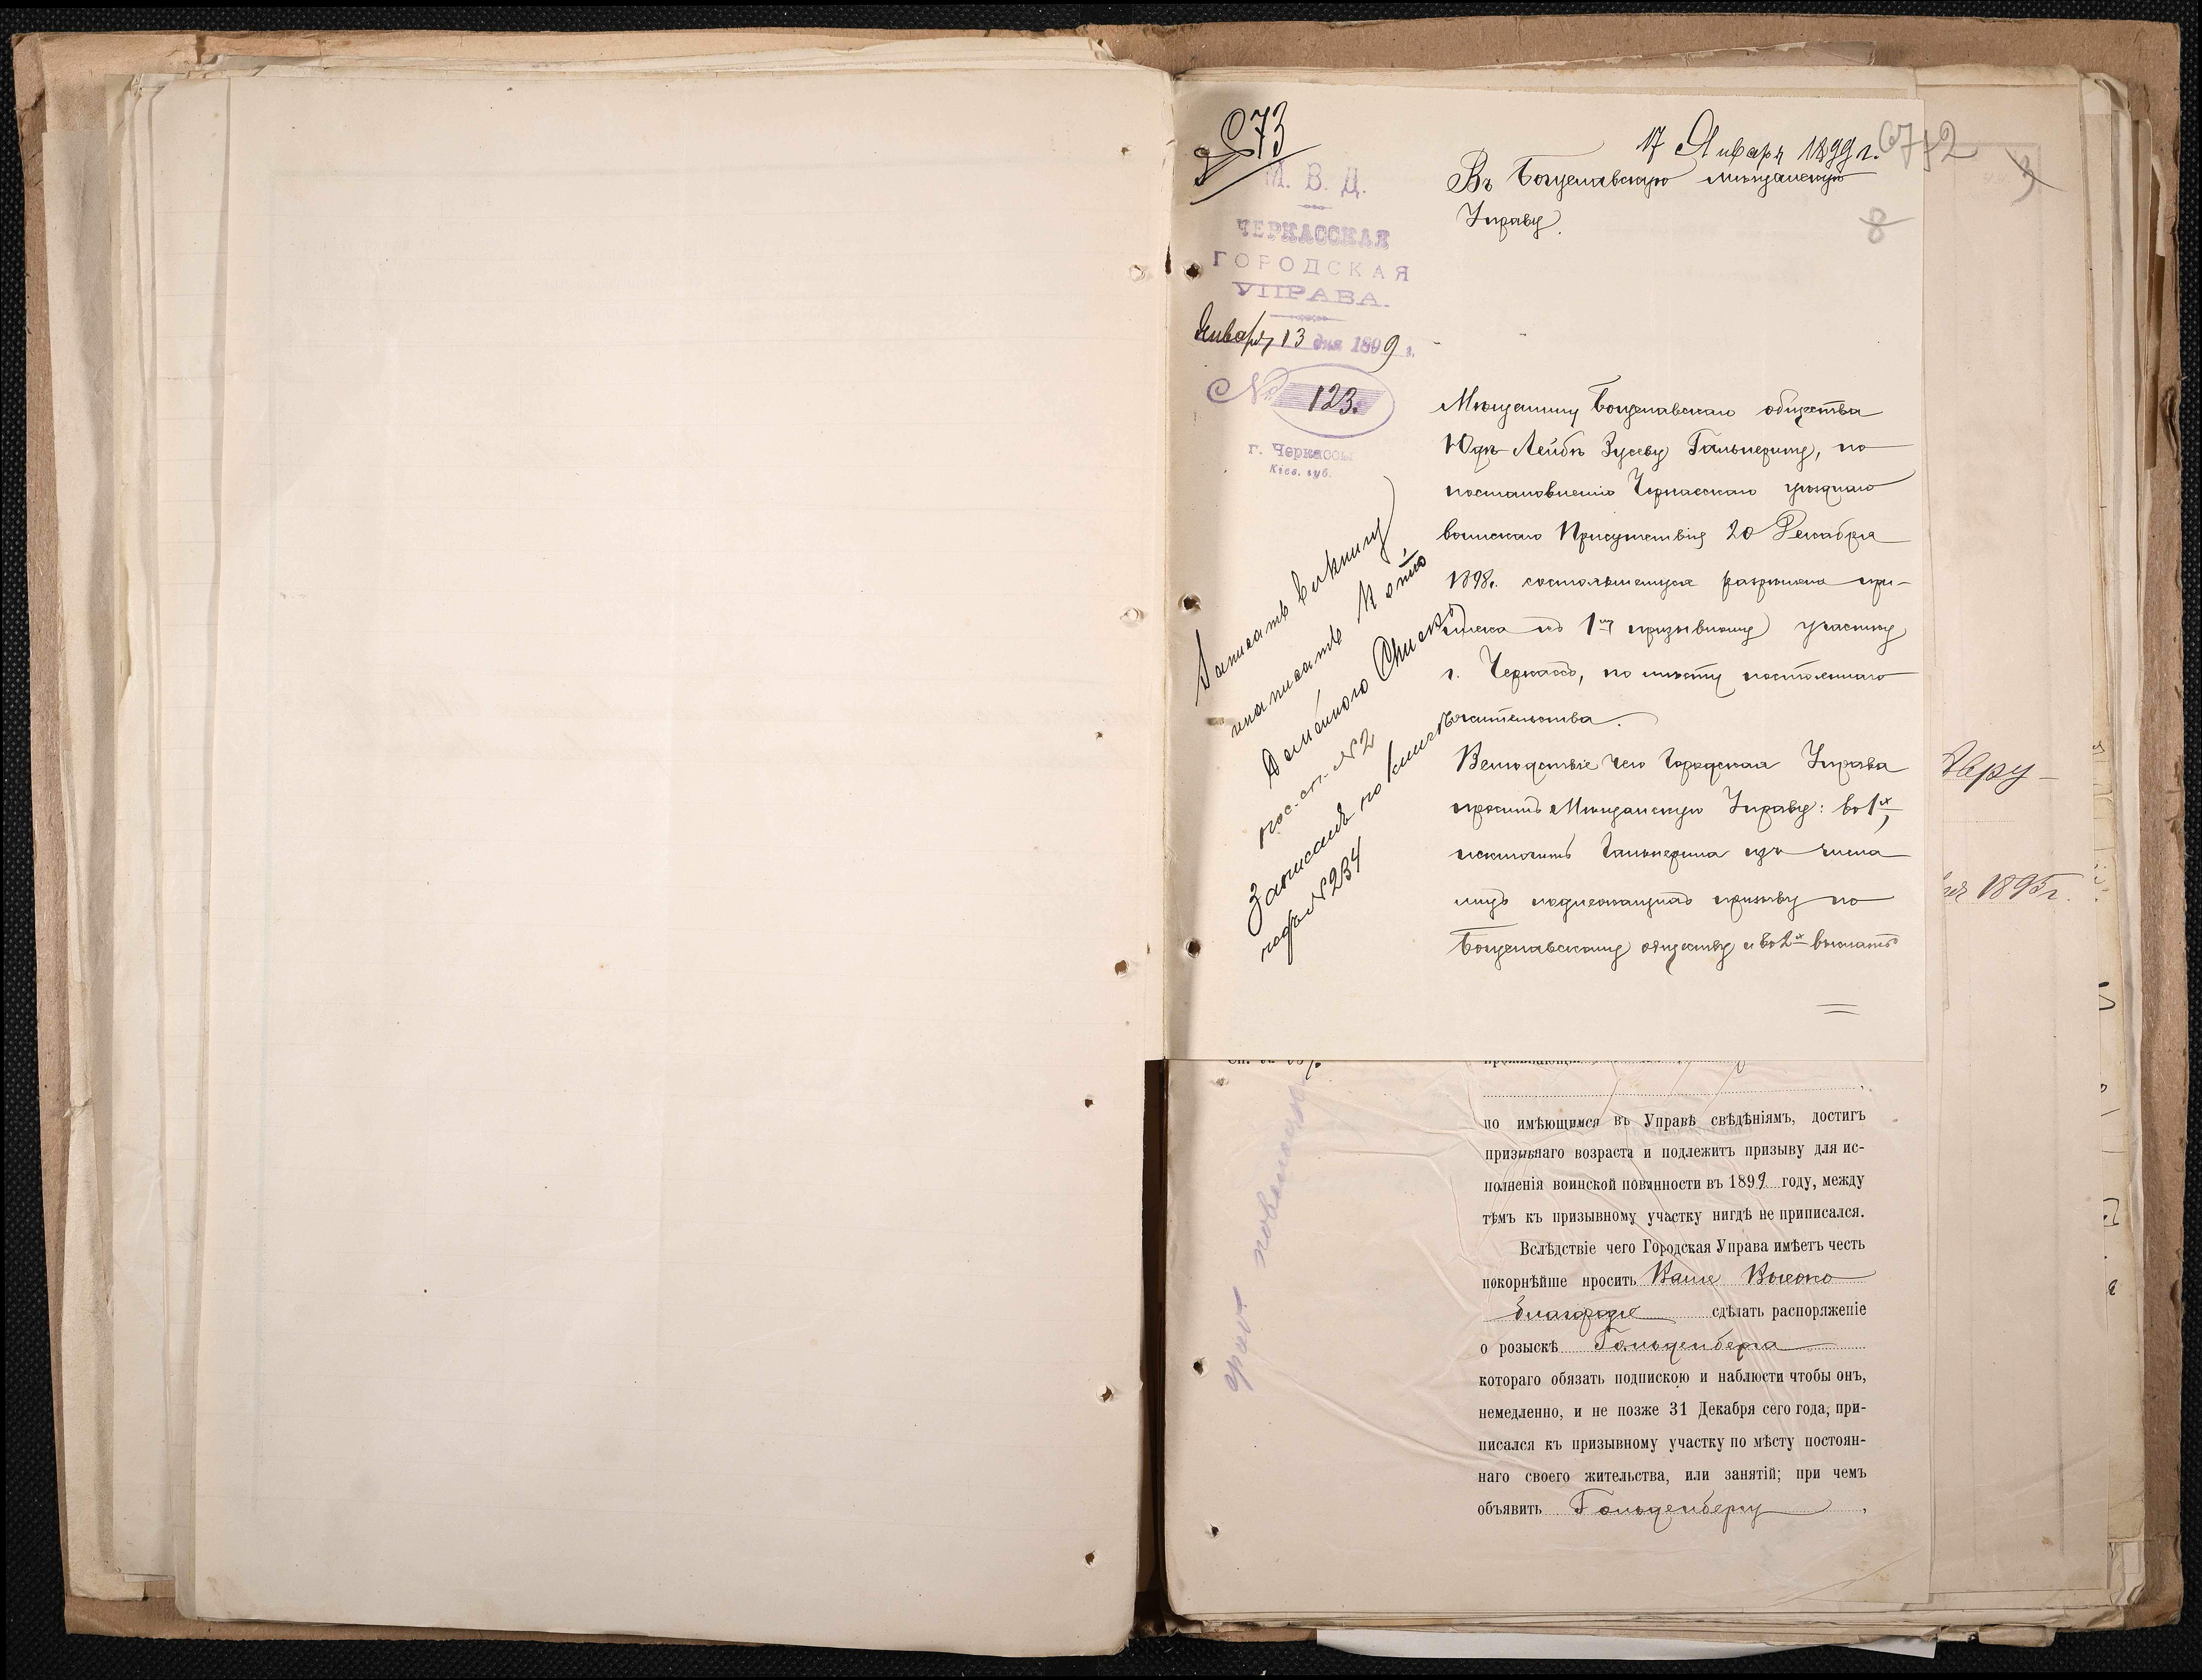 273
М. В. Д.
ЧЕРКАССКАЯ
ГОРОДСКАЯ
УПРАВА.
Января 13 дня 1899 г.
№ 123.
г. Черкассы
Кіев. губ.
17 Января 1899 г.
Въ Богуславскую мѣщанскую
Управу.
8
Мѣщанину Богуславскаго общества
Юдѣ-Лейбѣ Зусеву Гальперину, по
постановленію Черкасскаго уѣзднаго
воинскаго Присутствія 20 Декабря
1898г. состоявшемуся разрѣшена при-
писка къ 1му призывному участку
г. Черкассъ, по мѣсту постояннаго
жительства.
Вслѣдствіе чего Городская Управа
проситъ Мѣщанскую Управу: во 1х,
исключить Гальперина изъ числа
лицъ подлежащихъ призыву по
Богуславскому обществу и во 2х выслать
Записать въ книгу
и написать
пос. сп. № 2
Записанъ по книгѣ
подъ № 234
1895 г.
по имѣющимся въ Управѣ свѣдѣніямъ, достигъ
призывнаго возраста и подлежитъ призыву для ис-
полненія воинской повинности въ 1899 году, между
тѣмъ къ призывному участку нигдѣ не приписался.
Вслѣдствіе чего Городская Управа имѣетъ честь
покорнѣйше просить Ваше Высоко
благородіе сдѣлать распоряженіе
о розыскѣ Гольденберга
котораго обязать подпискою и наблюсти чтобы онъ,
немедленно, и не позже 31 Декабря сего года, при-
писался къ призывному участку по мѣсту постоян-
наго своего жительства, или занятій; при чемъ
объявить Гольденбергу ,